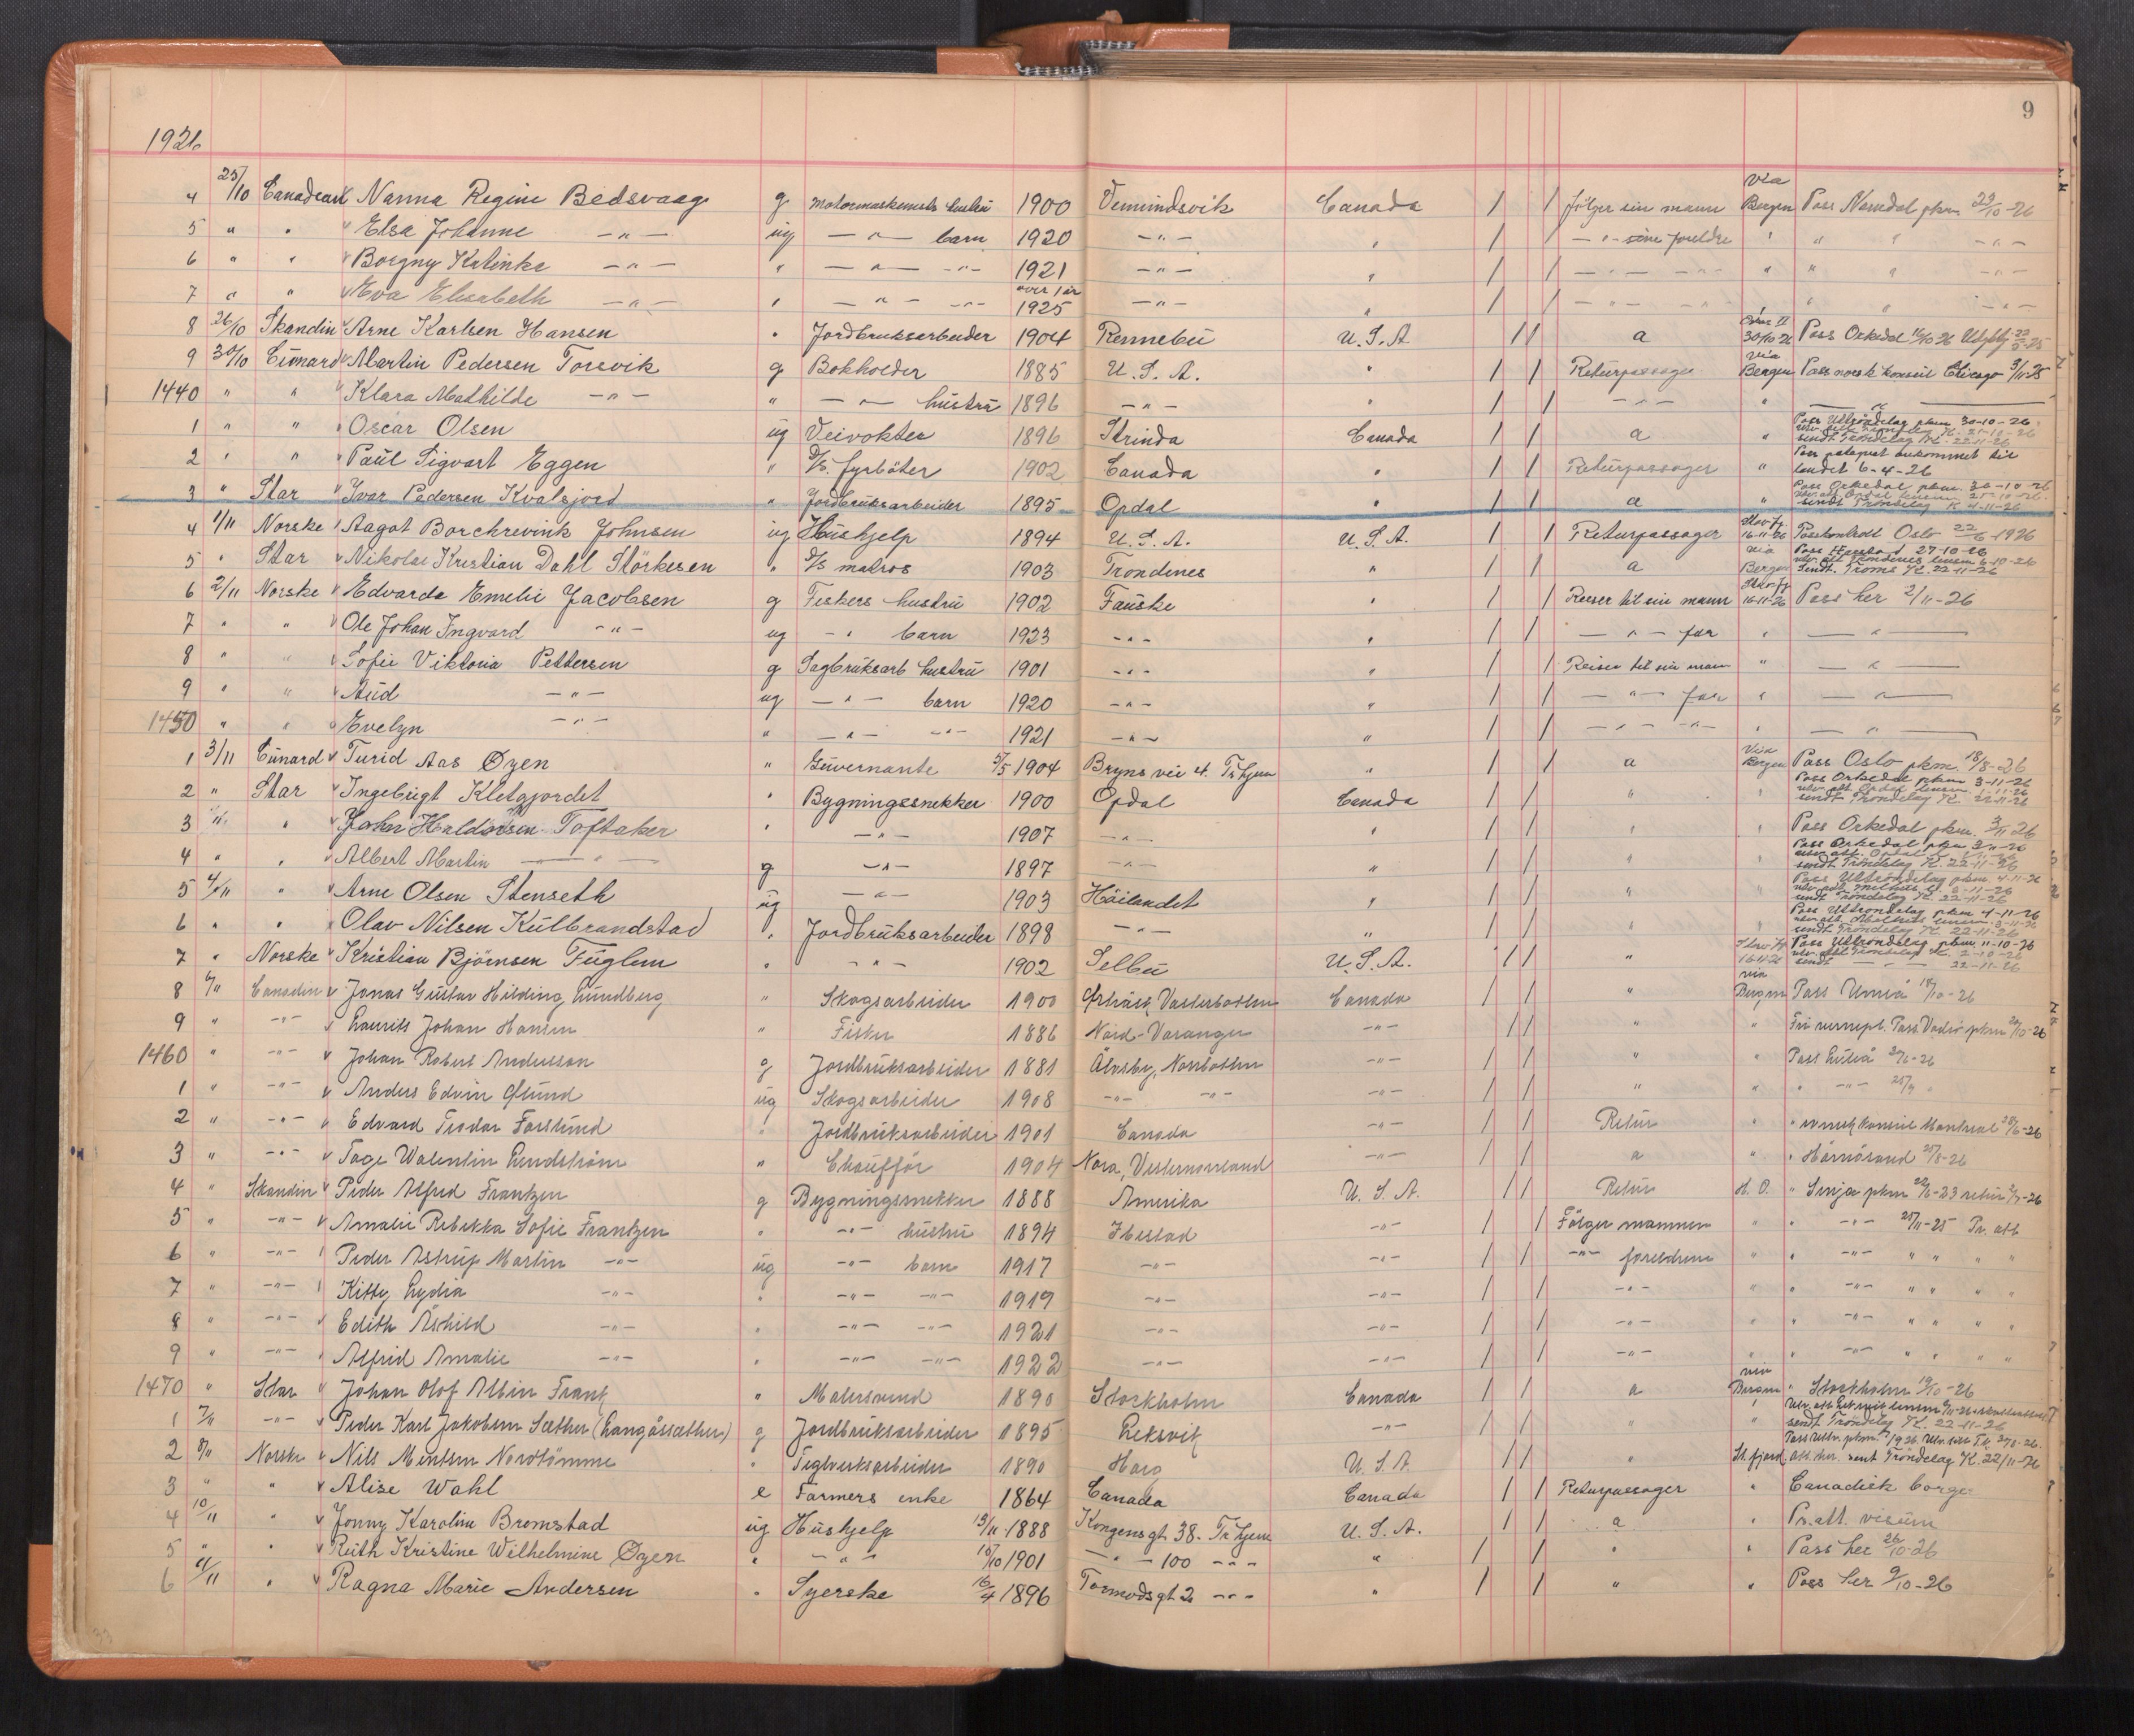 9
1926
4 25/10 Canadean Nanna Regine Bedsvaag g motormaskinists hustru 1900 Vemundsvik Canada / / følger sin mann via Bergen Pass Namdal pkm 23/10-26
5 " " Elsa Johanne —"— ug —"— barn 1920 —"— " / / —"— sine foreldre " " " —"—
6 " " Borgny Katinka —"— " —"— —"— 1921 —"— " / / —"— —"— " " " —"—
7 " " Eva Elisabeth —"— " —"— —"— over 1 år 1925 —"— " / / —"— —"— " " —"—
8 26/10 Skandin Arne Karlsen Hansen " Jordbruksarbeider 1904 Rennebu U.S.A. / / a 30/10 26 Pass Orkedal
9 30/10 Cunard Martin Pedersen Torsvik g Bokholder 1885 U.S.A. " / / Returpassager via Bergen Pass norsk konsul Chicago 3/11-25
1440 " " Klara Mathilde —"— " —"— hustru 1896 —"— " / / —"— " —"—
1 " " Oscar Olsen ug Veivokter 1896 Strinda Canada / / a " Pass Uttrøndelag pkm 30-10-26 sendt Trøndelag K. 22-11-26
2 " " Paul Sigvart Eggen " D/S. fyrbøter 1902 Canada " / / Returpassager " Pass påtegnet ankommet til landet 6-4-26
3 " Star Ivar Pedersen Kvalsjord " Jordbruksarbeider 1895 Opdal " / / a " Pass Orkedal pkm. 30-10-26 sendt Trøndelag K 4-11-26
4 1/11 Norske Aagot Borchrevink Johnsen ug Hushjelp 1894 U.S.A. U.S.A. / / Returpassager 16-11-26 Passkontroll Oslo 22/6-1926
5 " Star Nikolai Kristian Dahl Störkesen " D/S matros 1903 Trondenes " / / a via Bergen Pass 27-10-26 sendt. Troms K. 22-11-26
6 2/11 Norske Edvarda Emelie Jacobsen g Fiskers hustru 1902 Fauske " / / Reiser til sin mann 16-11-26 Pass her 2/11-26
7 " " Ole Johan Ingvard —"— ug —"— barn 1923 —"— " / / —"— far " —"—
8 " " Sofie Viktoria Pettersen g Sagbruksarb hustru 1901 —"— " / / Reiser til sin mann " —"—
9 " " Aud —"— ug —"— barn 1920 —"— " / / —"— far " —"—
1450 " " Evelyn —"— " —"— —"— 1921 —"— " / / —"— —"— " —"—
1 3/11 Cunard Turid Aas Øzen " Guvernante 5/5 1904 Bryns vei 4. Tr hjem " / / a Via Bergen Pass Oslo pkm. 18/8-26
2 " Star Ingebrigt Kletgjordet " Bygningssnekker 1900 Opdal Canada / / " " Pass Orkedal pkm 3-11-26 sendt Trøndelag K. 22-11-26
3 " " John Haldorsen Toftaker " —"— 1907 —"— " / / " " Pass Orkedal pkm. 3/11 26
4 " " Albert Martin —"— g —"— 1897 —"— " / / " " Pass Orkedal pkm 3-11-26 sendt Trøndelag K. 22-11-26
5 4/11 " Arne Olsen Stenseth ug —"— 1903 Höilandet " / / " " Pass Uttrøndelag pkm 4-11-26 sendt Trøndelag K. 22-11-26
6 " " Olav Nilsen Kulbrandstad " Jordbruksarbeider 1898 —"— " / / " " Pass Uttrøndelag pkm 4-11-26 sendt Trøndelag K. 22-11-26
7 " Norske Kristian Björnsen Fuglem " —"— 1902 Selbu U.S.A. / / " 16-11-26 Pass Uttrøndelag pkm. 11-10-26 sendt —"— 22-11-26
8 6/11 Canadien Jonas Gustav Hilding Lundberg " Skogsarbeider 1900 Västerbotten Canada / / " via Bergen Pass Umeå 18/10-26
9 " —"— Laurits Johan Hansen " Fisker 1886 Nord-Varanger —"— / / " " Pass Vadsö pkm 20/10-26
1460 " —"— Johan Robert Andersson g Jordbruksarbeider 1881 Älvsby, Norrbotten —"— / / " " Pass Luleå
1 " —"— Anders Edvin Glund ug Skogsarbeider 1908 —"— —"— —"— / / " " " —"—
2 " —"— Edvard Teodor Forslund " Jordbruksarbeider 1901 Canada —"— / / Retur " " svensk konsul Montreal
3 " —"— Tage Walentin Lundström " Chaufför 1904 Nora, Vesternorrland —"— / / a " " Härnösand 25/8-26
4 " Skandin Peder Alfred Frantzen g Bygningssnekker 1888 Amerika U.S.A. / / Retur H.O. " Senja pkm
5 " —"— Amalie Rebekka Sofie Frantzen " —"— hustru 1894 Ibestad —"— / / Fölger mannen " " —"— 25/11-25 Pr. att
6 " —"— Peder Astrup Martin —"— ug —"— barn 1917 —"— —"— / / —"— foreldrene " " —"— " " " "
7 " —"— Kitty Lydia —"— " —"— —"— 1919 —"— —"— / / —"— " " —"— " " " "
8 " —"— Edith Åshild —"— " —"— —"— 1921 —"— —"— / / —"— " " —"— " " " "
9 " —"— Alfrid Amalie —"— " —"— —"— 1922 —"— —"— / / —"— " " —"— " " " "
1470 " Star Johan Olof Albin Frank " Malersvend 1890 Stockholm Canada / / a via Bergen " Stockholm 19/10-26
1 7/11 —"— Peder Karl Jakobsen Sæther (Langåssæther) g Jordbruksarbeider 1895 Leksvik —"— / / " " sendt Trøndelag K. 22-11-26
2 8/11 Norske Nils Mentsen Nordtömme " Teglverksarbeider 1890 Horg U.S.A. / / " St. fjord att. her. sent Trøndelag K. 22/11-26
3 " " Alise Wahl e Farmers enke 1864 Canada Canada / / Returpassager " Canadisk borger
4 10/11 " Jonny Karoline Bromstad ug Hushjelp 13/11-1888 Kongensgt. 38. Tr hjem U.S.A. / / a " Pr. att. visum
5 " " Ruth Kristine Wilhelmine Øzen " —"— 15/10 1901 —"— 100 —"— " / / " " Pass her 26/10-26
6 11/11 " Ragna Marie Andersen " Syerske 16/4 1896 Tormodsgt 2 —"— " / / " " Pass her 9/10-26
33